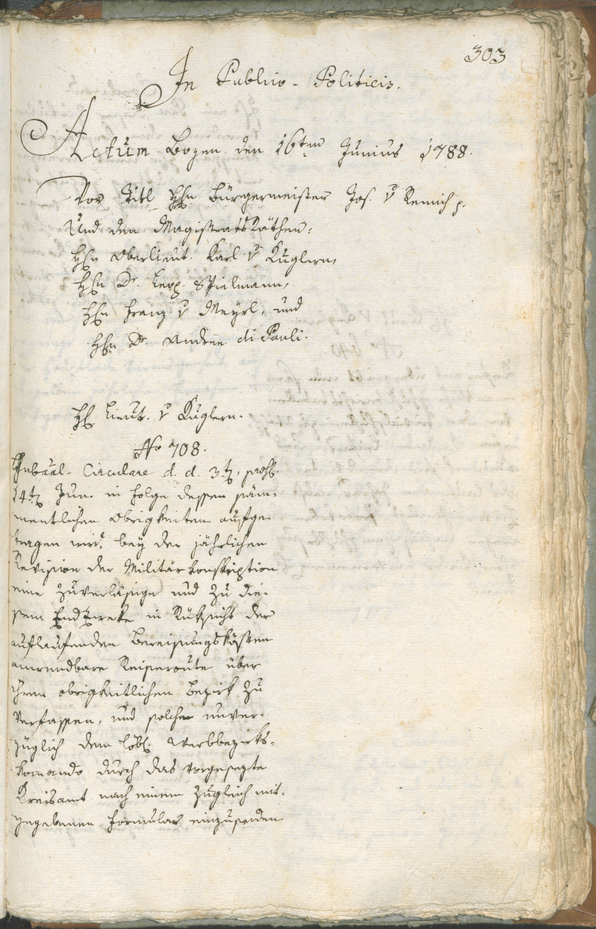 303
In Publico-Politicis.
Actum Bozen den 16ten Junius 1788.
Vor Titl Hhn Bürgermeister Jos. v Remich p.
Und den Magistratsräthen:
Hhn Oberlieut. Karl v Kuglern,
Hhn Dr. Leop. Spielmann,
Hhn Franz v Mayrl, und
Hhn Dr. Andree di Pauli.
Hh Lieut. v Kuglern.
No 708.
Gubial-Circulare d. d. 3t, prs.
14t Jun. in Folge dessen säm-
mentlichen Obrigkeiten aufge-
tragen wird, bey der jährlichen
Revision der Militärkonskription
eine zuverläßige und zu die-
sem Endzweke in Rüksicht der
auflaufenden Bereisungskösten
anwendbare Reiseroute über
ihren obrigkeitlichen Bezirk zu
verfassen, und solche unver-
züglich dem löbl. Werbbezirks-
komando durch das vorgesezte
Kreisamt nach einem zugleich mit-
gegebenen Formular einzusenden